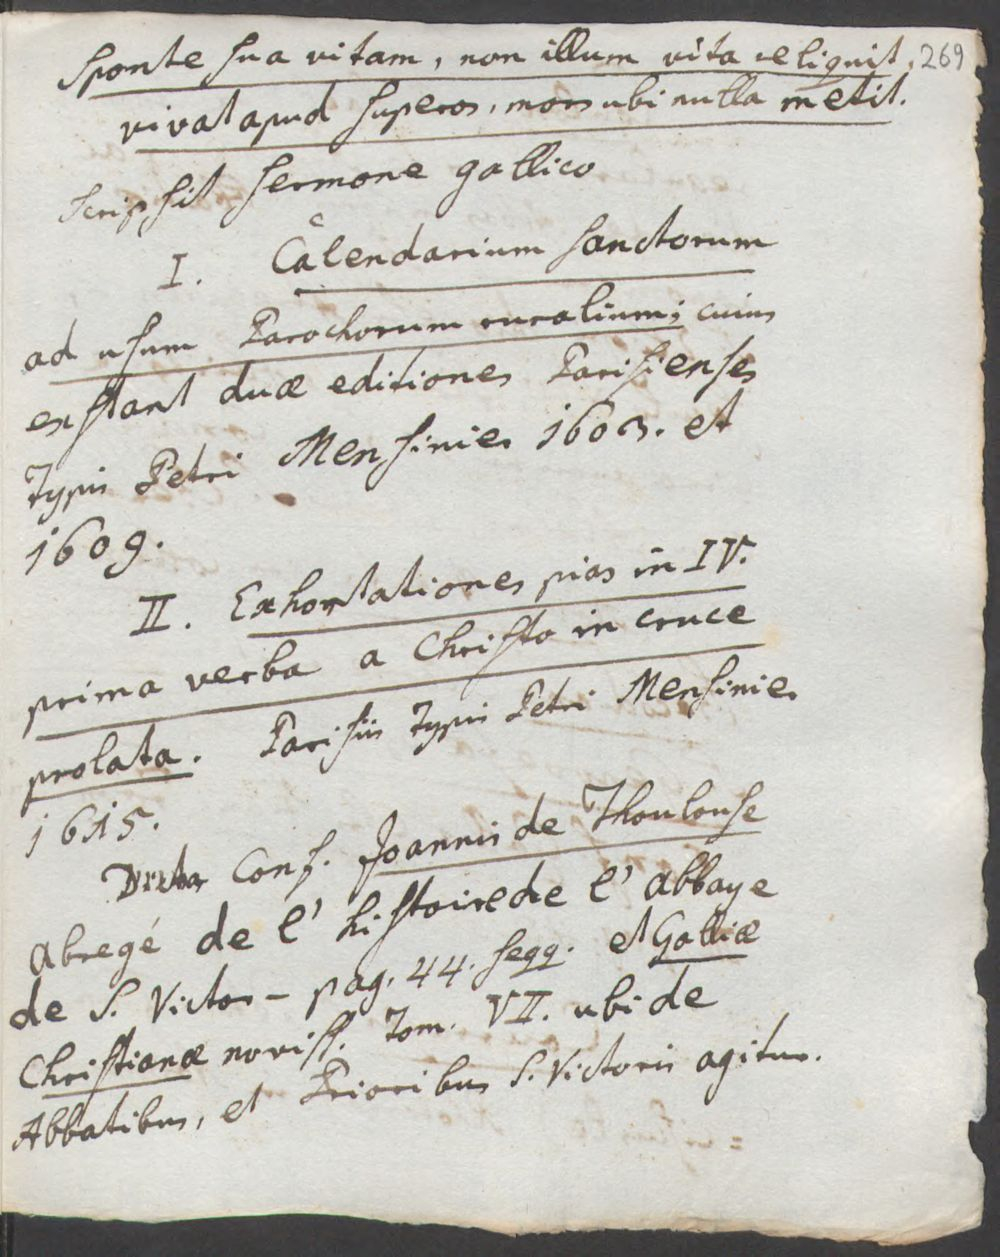 Sponte sua vitam, non illum vita reliquit, 269
vivat apud superos, mors ubi nulla metit.
Scripsit sermone gallico
I. Calendarium Sanctorum
ad usum Parochorum ruralium; cuius
exstant duæ editiones Parisienses
Typis Petri Mensinies 1603. et
1609.
II. Exhortationes pias in IV.
prima verba a Christo in cruce
prolata. Parisiis Typis Petri Mensinies
1615.
Conf. Joannis de Thoulouse
Abregé de l'histoire de l'abbaye
de S. Victor - pag. 44. seqq. et Galliæ
Christianæ noviss. Tom. VII. ubi de
Abbatibus, et Prioribus S. Victoris agitur.